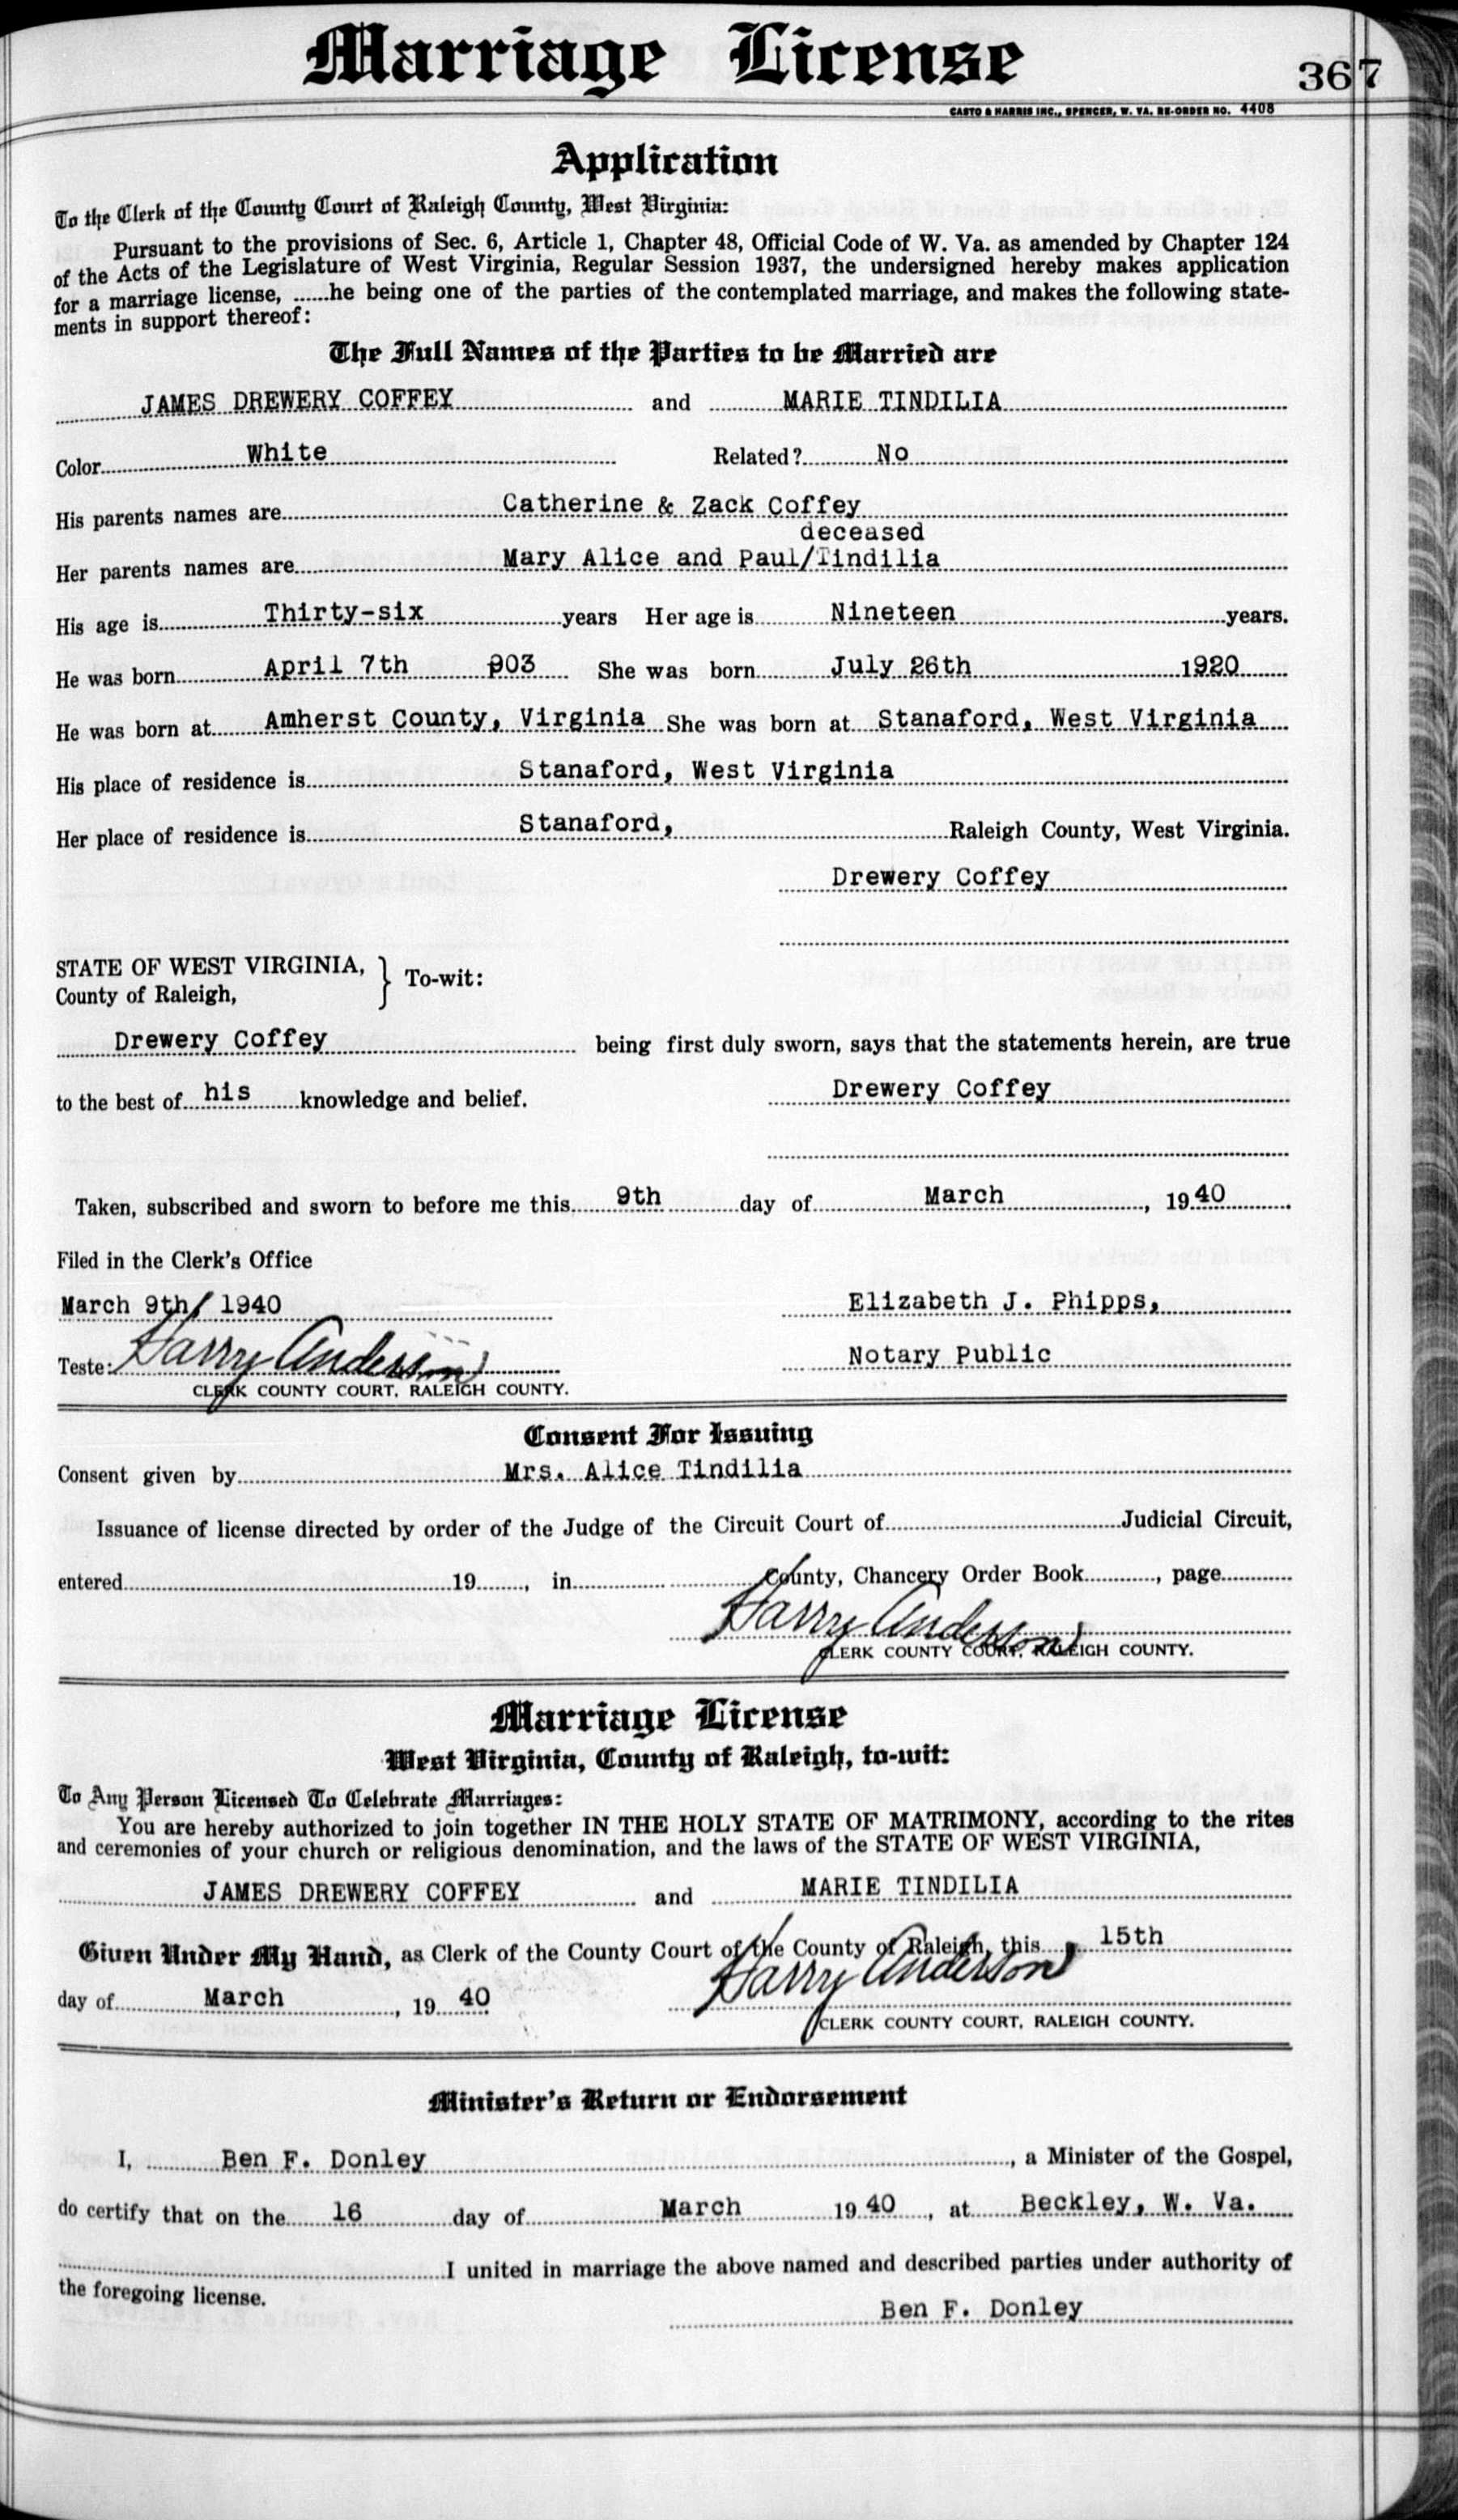 Marriage License
367
CASTO & HARRIS INC., SPENCER, W. VA. RE-ORDER NO. 4408
Application
To the Clerk of the County Court of Raleigh County, West Virginia:
Pursuant to the provisions of Sec. 6, Article 1, Chapter 48, Official Code of W. Va. as amended by Chapter 124
of the Acts of the Legislature of West Virginia, Regular Session 1937, the undersigned hereby makes application
for a marriage license, ......he being one of the parties of the contemplated marriage, and makes the following state-
ments in support thereof:
The Full Names of the Parties to be Married are
JAMES DREWERY COFFEY and MARIE TINDILIA
Color White Related? No
His parents names are Catherine & Zack Coffey
deceased
Her parents names are Mary Alice and Paul/Tindilia
His age is Thirty-six years Her age is Nineteen years.
He was born April 7th 903 She was born July 26th 1920
He was born at Amherst County, Virginia She was born at Stanaford, West Virginia
His place of residence is Stanaford, West Virginia
Her place of residence is Stanaford, Raleigh County, West Virginia.
Drewery Coffey
STATE OF WEST VIRGINIA, } To-wit:
County of Raleigh,
Drewery Coffey being first duly sworn, says that the statements herein, are true
to the best of his knowledge and belief. Drewery Coffey
Taken, subscribed and sworn to before me this 9th day of March, 1940
Filed in the Clerk's Office
March 9th, 1940 Elizabeth J. Phipps,
Teste: Harry Anderson Notary Public
CLERK COUNTY COURT, RALEIGH COUNTY.
Consent For Issuing
Consent given by Mrs. Alice Tindilia
Issuance of license directed by order of the Judge of the Circuit Court of Judicial Circuit,
entered 19, in County, Chancery Order Book, page
Harry Anderson
CLERK COUNTY COURT, RALEIGH COUNTY.
Marriage License
West Virginia, County of Raleigh, to-wit:
To Any Person Licensed To Celebrate Marriages:
You are hereby authorized to join together IN THE HOLY STATE OF MATRIMONY, according to the rites
and ceremonies of your church or religious denomination, and the laws of the STATE OF WEST VIRGINIA,
JAMES DREWERY COFFEY and MARIE TINDILIA
Given Under My Hand, as Clerk of the County Court of the County of Raleigh, this 15th
day of March, 19 40 Harry Anderson
CLERK COUNTY COURT, RALEIGH COUNTY.
Minister's Return or Endorsement
I, Ben F. Donley, a Minister of the Gospel,
do certify that on the 16 day of March 19 40, at Beckley, W. Va.
I united in marriage the above named and described parties under authority of
the foregoing license.
Ben F. Donley